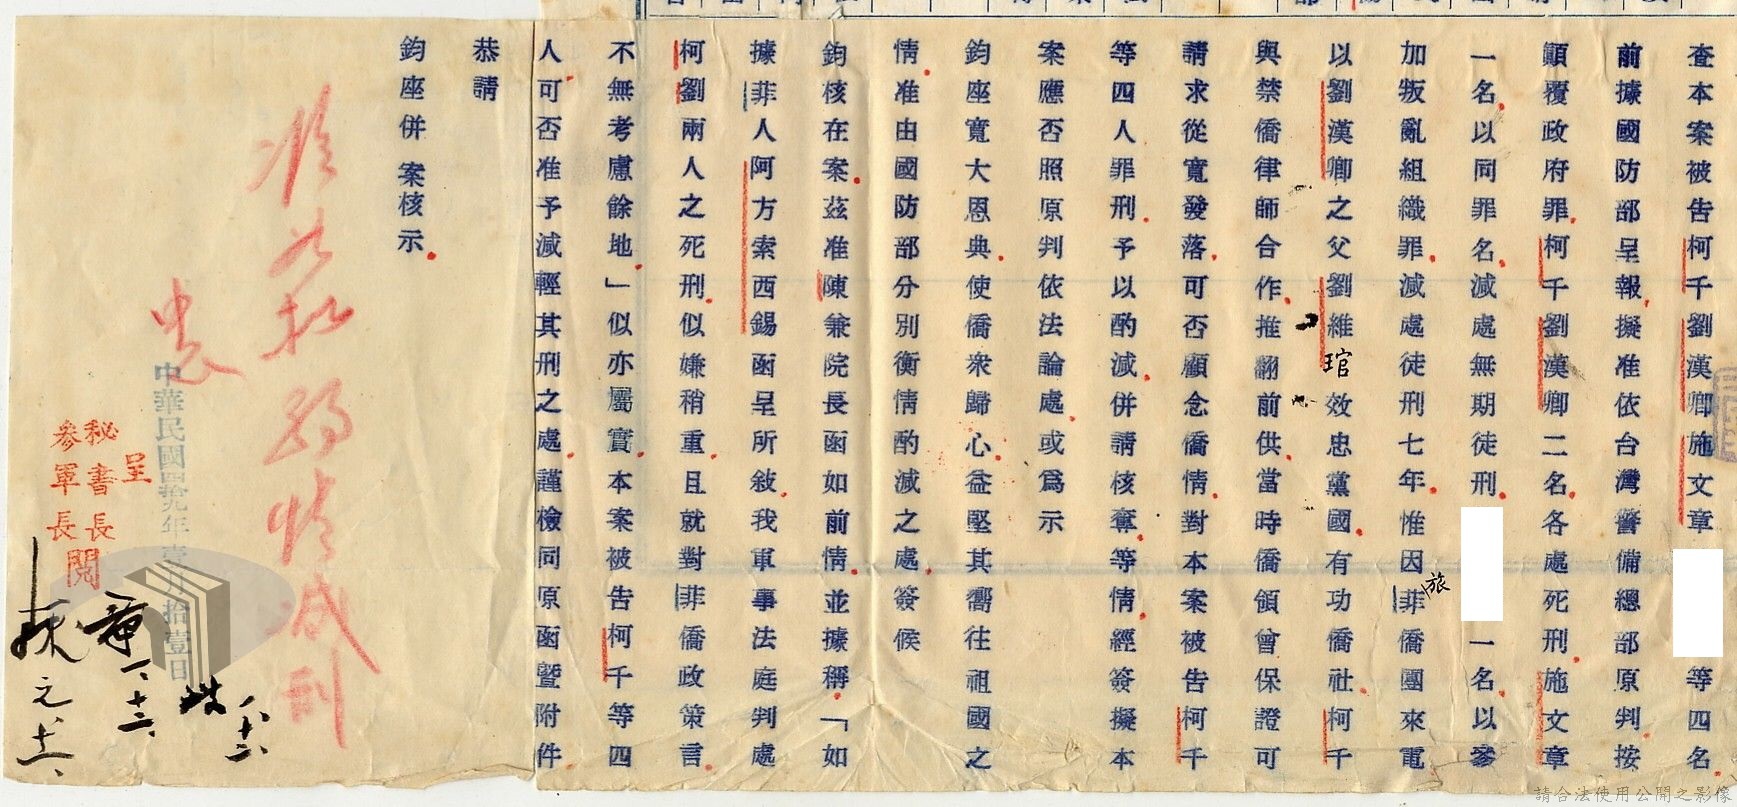 查本案被告柯千劉漢卿施文章等四名
前據國防部呈報擬准依台灣警備總部原判按
顛覆政府罪柯千劉漢卿二名各處死刑施文章
一名以同罪名減處無期徒刑一名以參
加叛亂組織罪減處徒刑七年惟因旅菲僑團來電
以劉漢卿之父劉維琯效忠黨國有功僑社柯千
與禁僑律師合作推翻前供當時僑領曾保證可
請求從寬發落可否顧念僑情對本案被告柯千
等四人罪刑予以酌減併請核奪等情經簽擬本
案應否照原判依法論處或爲示
鈞座寬大恩典使僑衆歸心益堅其嚮往祖國之
情准由國防部分別衡情酌減之處簽候
鈞核在案茲准陳兼院長函如前情並據稱「如
據菲人阿方索西錫函呈所敍我軍事法庭判處
柯劉兩人之死刑似嫌稍重且就對菲僑政策言
不無考慮餘地」似亦屬實本案被告柯千等四
人可否准予減輕其刑之處謹檢同原函暨附件
恭請
鈞座併案核示
准從酌情減刑
中華民國四拾九年壹月拾壹日
呈
秘書長
參軍長
閱
請合法使用公開之影像